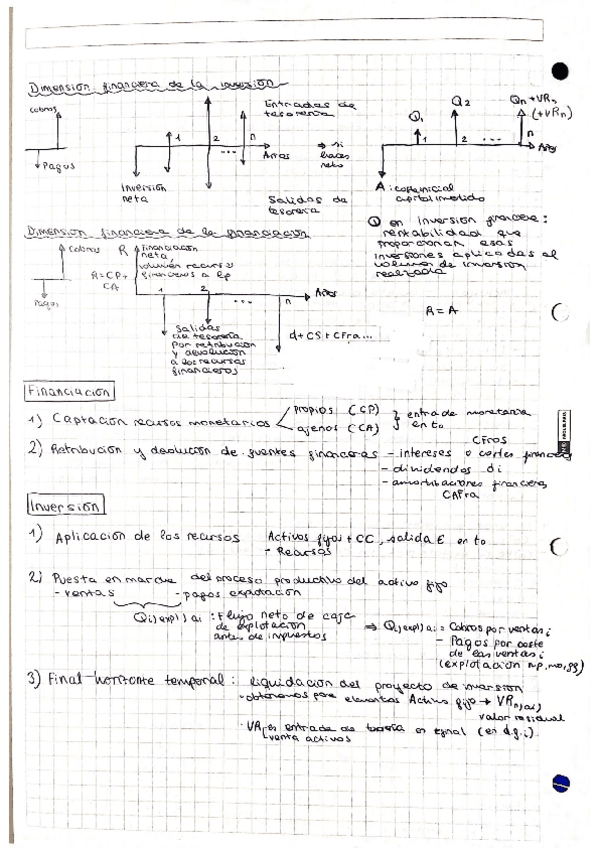 Dimensión financiera de la inversión
Cobros
Pagos
1
2
n
...
Años
Entradas de
tesorería
Inversión
neta
Salidas de
tesorería
⇒ si
haces
neto
Q1
Q2
Qn + VRn
(+VRn)
1
2
...
n
Años
A: coste inicial
capital invertido
en inversión financiera:
rentabilidad que
proporcionan esas
inversiones aplicadas al
volumen de inversión
realizada
Dimensión financiera de la financiación
Cobros
Pagos
R
R=CP+
CA
Financiación
neta
volumen recursos
financieros a lp
1
2
...
n
Años
Salidas
de tesorería
por retribución
y devolución
a los recursos
financieros
d + CS + CFra...
R = A
Financiación
1) Captación recursos monetarios
propios (CP)
ajenos (CA)
entrada monetaria
en to
2) Retribución y devolución de fuentes financieras
CFros
- intereses o costes financ
- dividendos di
- amortizaciones financieras
CAFra
Inversión
1) Aplicación de los recursos Activos fijos + CC, salida € en to
- Recursos
2) Puesta en marcha del proceso productivo del activo fijo
- ventas - pagos explotación
Qi)expl)ai: Flujo neto de caja
de explotación
antes de impuestos
⇒ Qi)expl)ai = Cobros por ventas i
- Pagos por coste
de las ventas i
(explotación mp, mo, gg)
3) Final-horizonte temporal: liquidación del proyecto de inversión
- obtenemos para elementos Activo fijo → VRn)ai)
valor residual
- VR es entrada de
venta activos